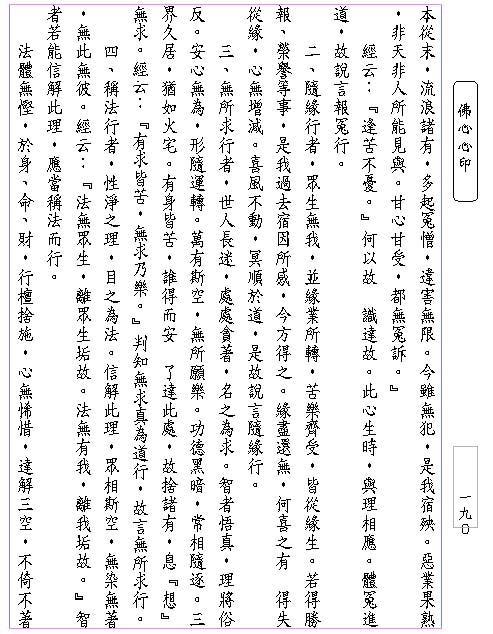 佛心心印
本從末，流浪諸有，多起冤憎，違害無限。今雖無犯，是我宿殃。惡業果熟
，非天非人所能見與。甘心甘受，都無冤訴。』
經云：『逢苦不憂。』何以故　識達故。此心生時，與理相應。體冤進
道，故說言報冤行。
二、隨緣行者，眾生無我，並緣業所轉，苦樂齊受，皆從緣生。若得勝
報、榮譽等事，是我過去宿因所感，今方得之。緣盡還無，何喜之有　得失
從緣，心無增減。喜風不動，冥順於道，是故說言隨緣行。
三、無所求行者，世人長迷，處處貪著，名之為求。智者悟真，理將俗
反。安心無為，形隨運轉。萬有斯空，無所願樂。功德黑暗，常相隨逐。三
界久居，猶如火宅。有身皆苦，誰得而安　了達此處，故捨諸有，息『想』
無求。經云：『有求皆苦，無求乃樂。』判知無求真為道行，故言無所求行。
四、稱法行者，性淨之理，目之為法。信解此理，眾相斯空，無染無著
，無此無彼。經云：『法無眾生，離眾生垢故。法無有我，離我垢故。』智
者若能信解此理，應當稱法而行。
法體無慳，於身、命、財，行檀捨施，心無悕惜，達解三空，不倚不著
一九〇